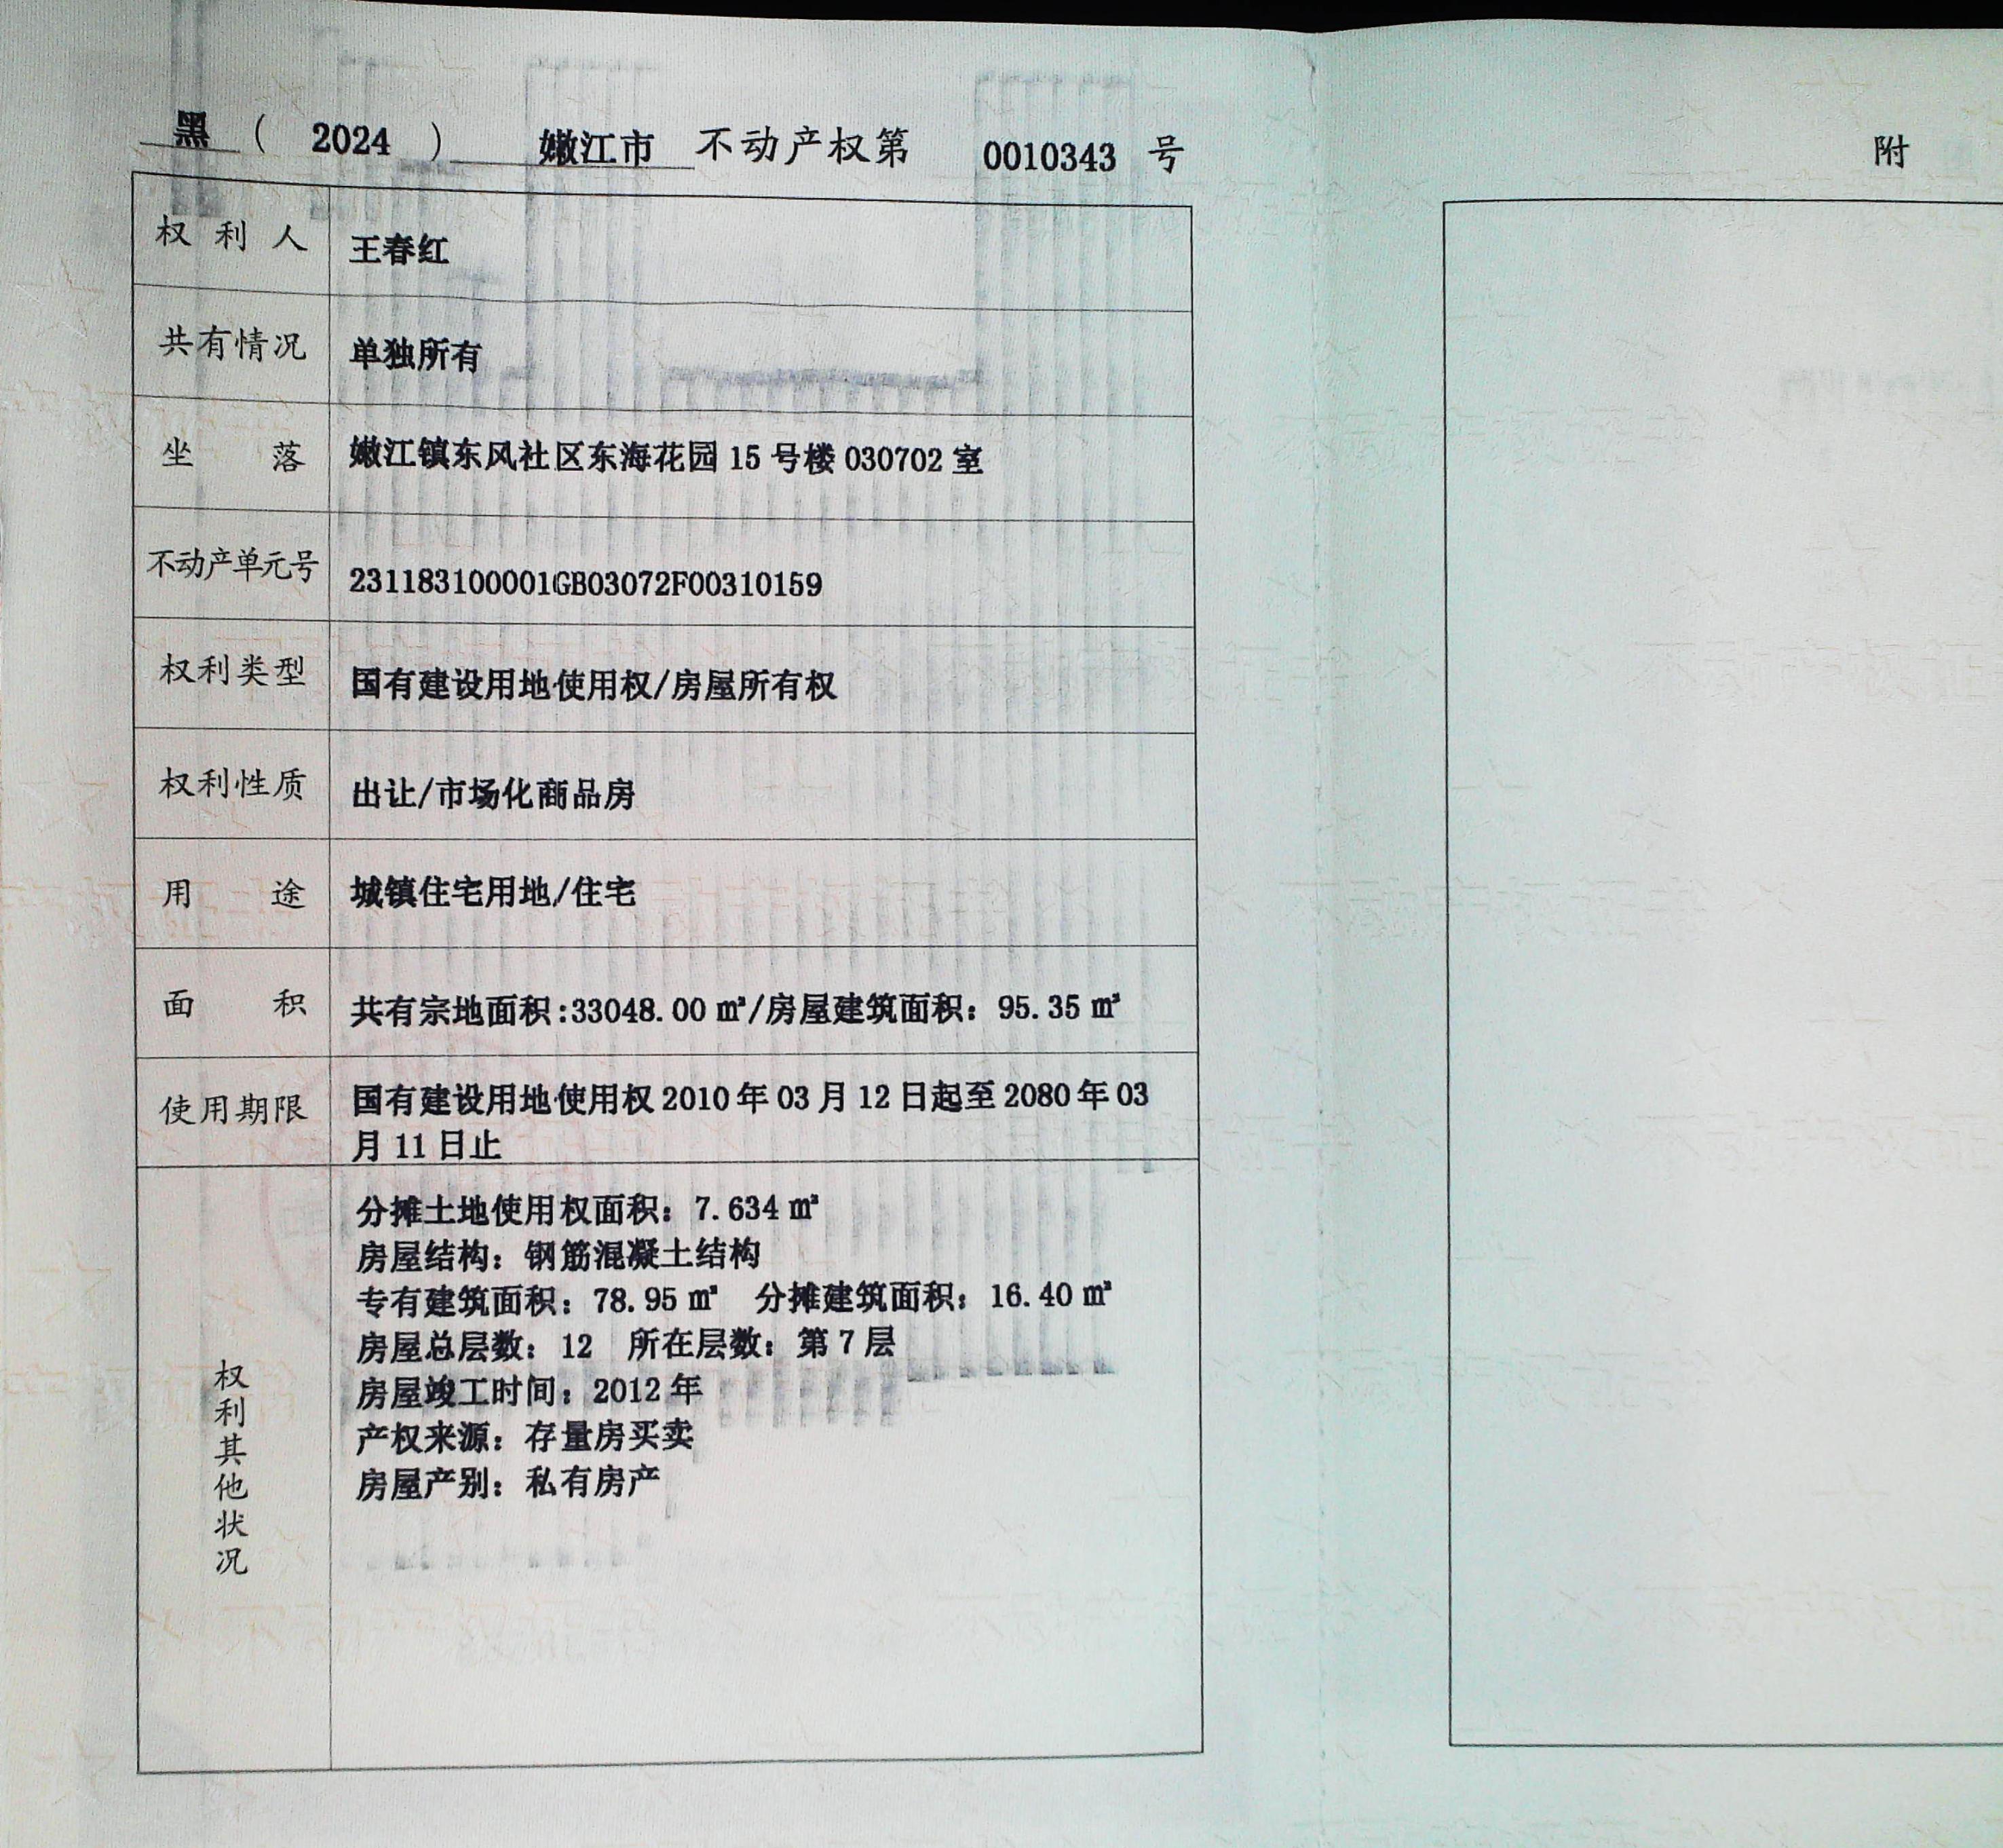 黑（2024）嫩江市不动产权第0010343号
权利人 王春红
共有情况 单独所有
坐落 嫩江镇东风社区东海花园15号楼030702室
不动产单元号 231183100001GB03072F00310159
权利类型 国有建设用地使用权/房屋所有权
权利性质 出让/市场化商品房
用途 城镇住宅用地/住宅
面积 共有宗地面积:33048.00㎡/房屋建筑面积：95.35㎡
使用期限 国有建设用地使用权2010年03月12日起至2080年03
月11日止
权利其他状况
分摊土地使用权面积：7.634㎡
房屋结构：钢筋混凝土结构
专有建筑面积：78.95㎡ 分摊建筑面积：16.40㎡
房屋总层数：12 所在层数：第7层
房屋竣工时间：2012年
产权来源：存量房买卖
房屋产别：私有房产
附